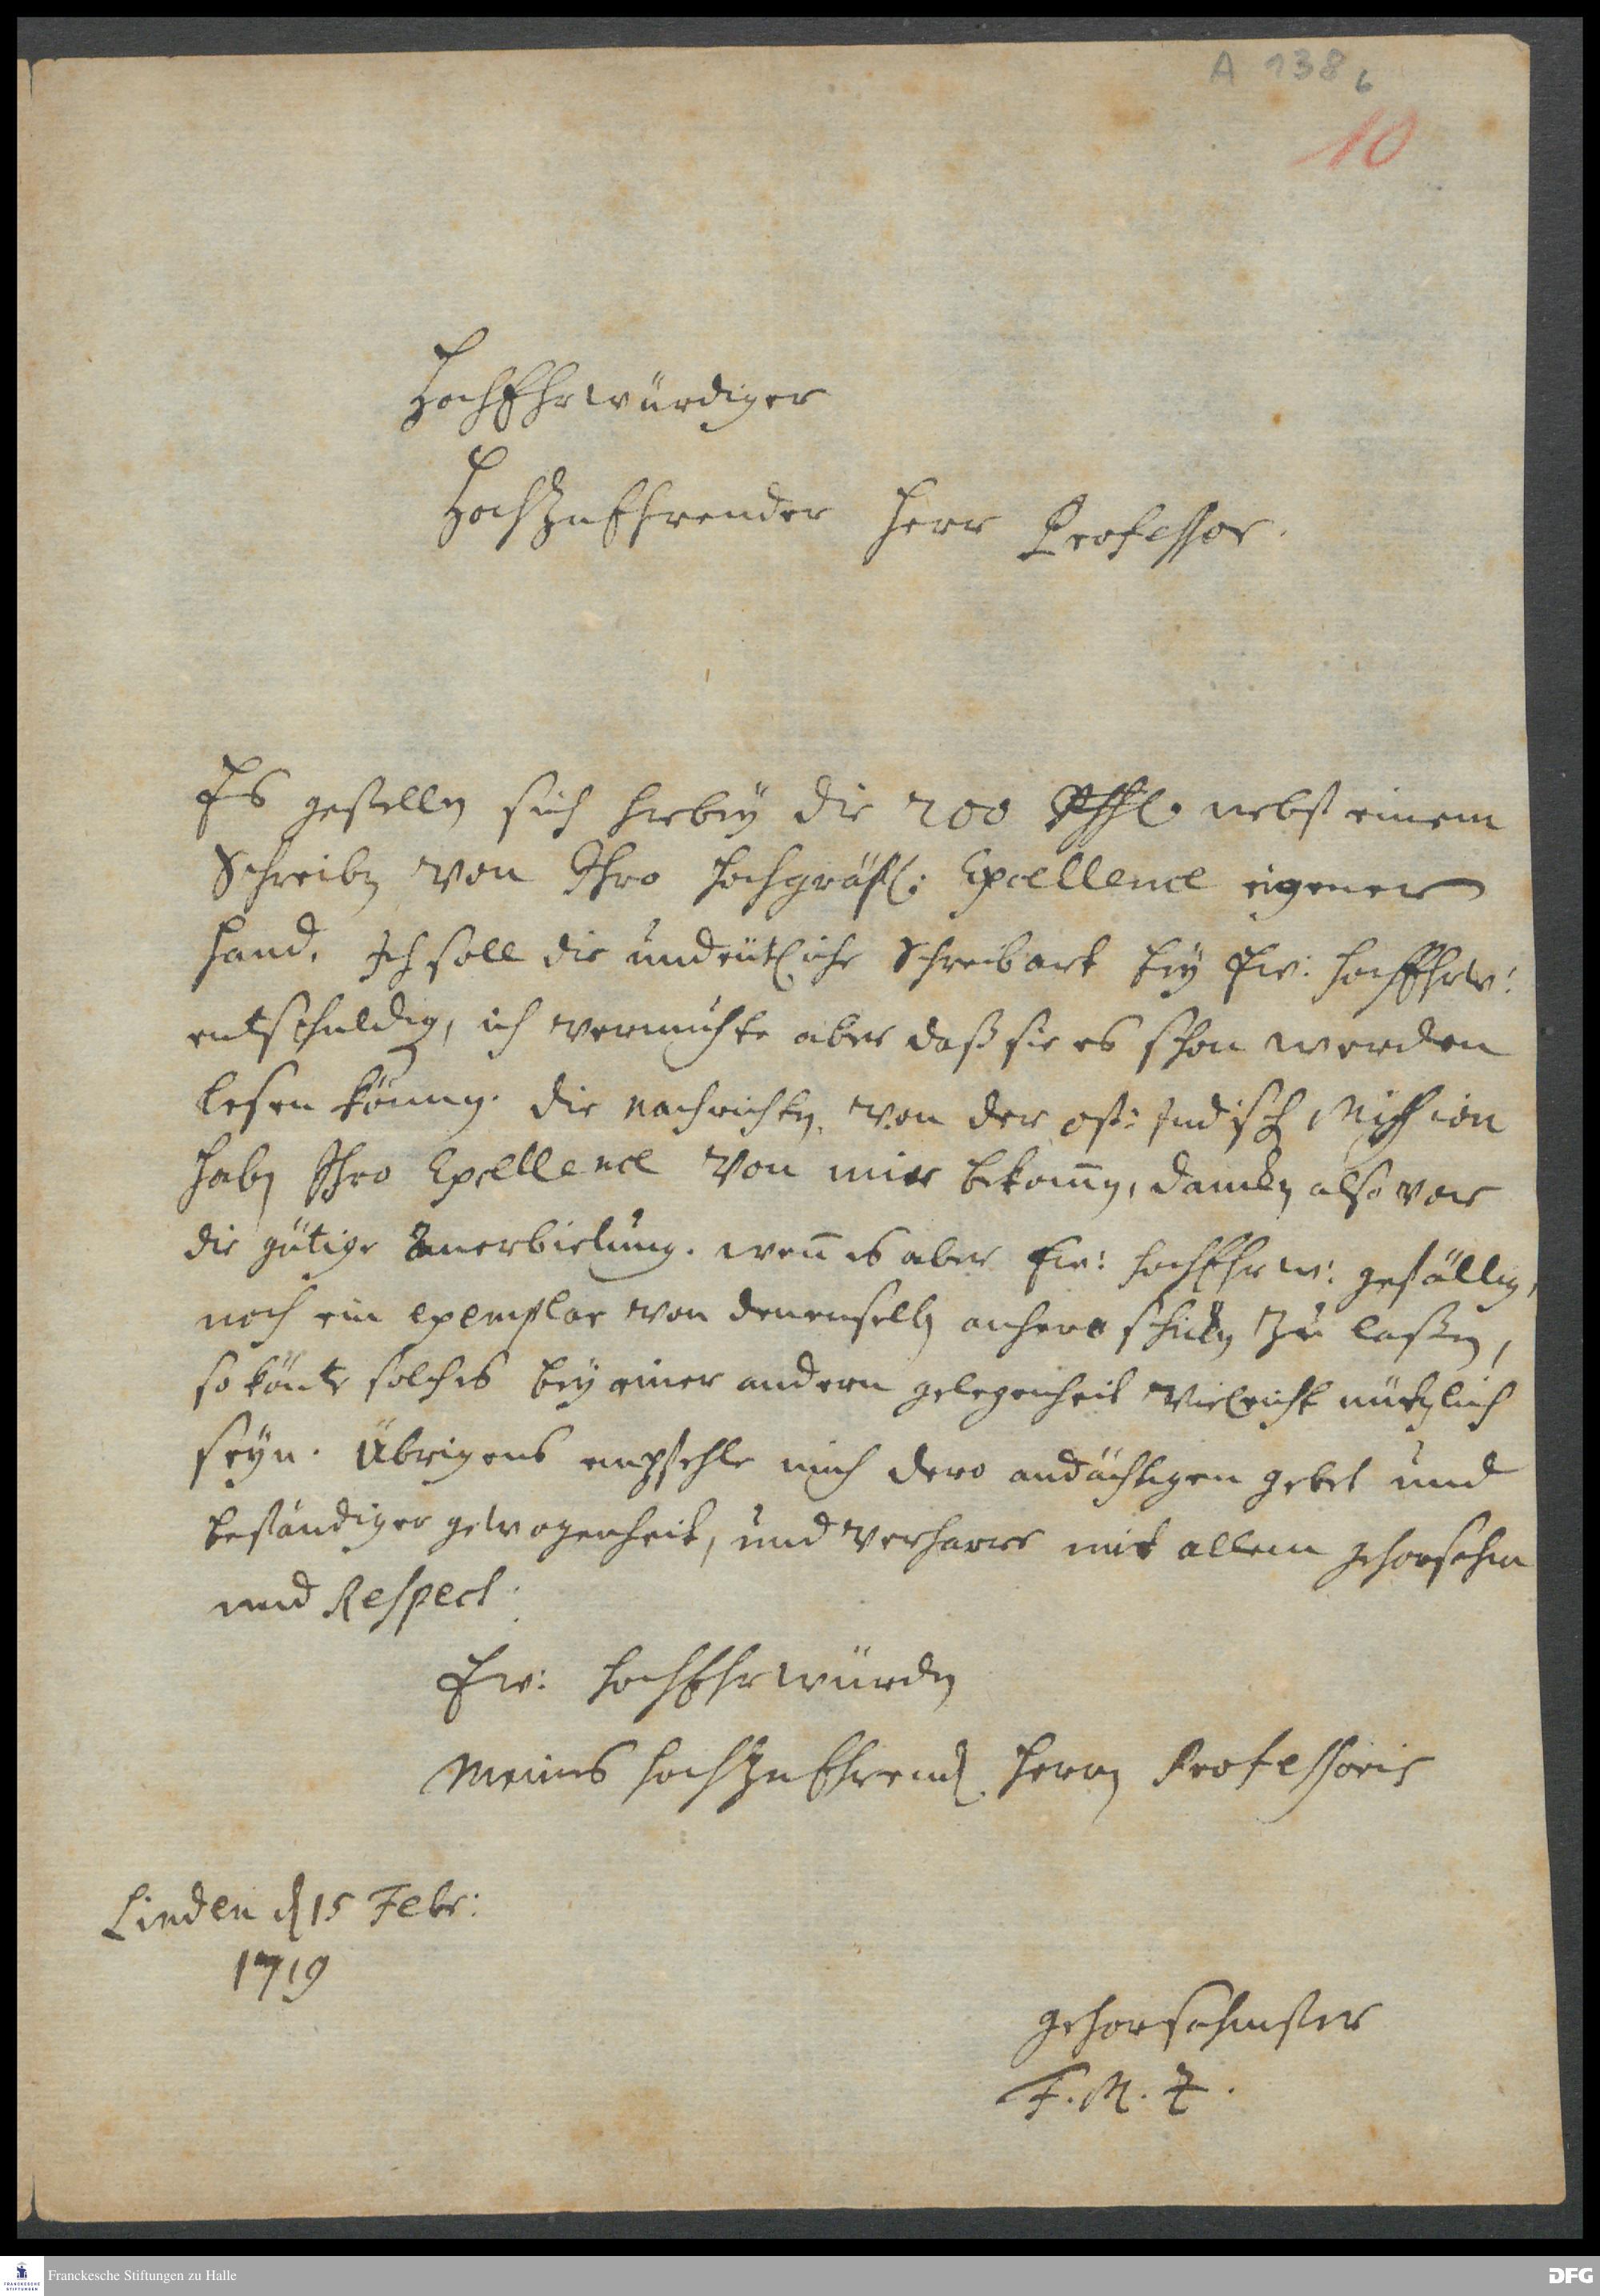 A 138 b
10
HochEhrwürdiger
HochzuEhrender Herr Professor.
Es gestellen sich hiebey die 200 Rthl. nebst einem
Schreiben von Ihro Hochgräfl: Excellence eigener
Hand. Ich soll die undeutliche Schreibart bey Ew: HochEhrw:
entschuldigen, ich vermuhte aber daß sie es schon werden
lesen können. die nachrichten von der ost: Indischen Mission
haben Ihro Excellence von mir bekommen, dancken also vor
die gütige Anerbietung. wenn es aber Ew: HochEhrw: gefällig,
noch ein exemplar von denenselben anhero schicken zu laßen,
so könte solches bey einer andern gelegenheit vieleicht nützlich
seyn. Übrigens empfehle mich dero andächtigen gebet und
beständiger gewogenheit, und verharre mit allem gehorsahm
und Respect.
Ew: HochEhrwürden
Meines HochzuEhrenden Herrn Professoris
Linden den 15 Febr:
1719
gehorsahmster
F. M. Z.
Franckesche Stiftungen zu Halle
FRANCKESCHE STIFTUNGEN
DFG